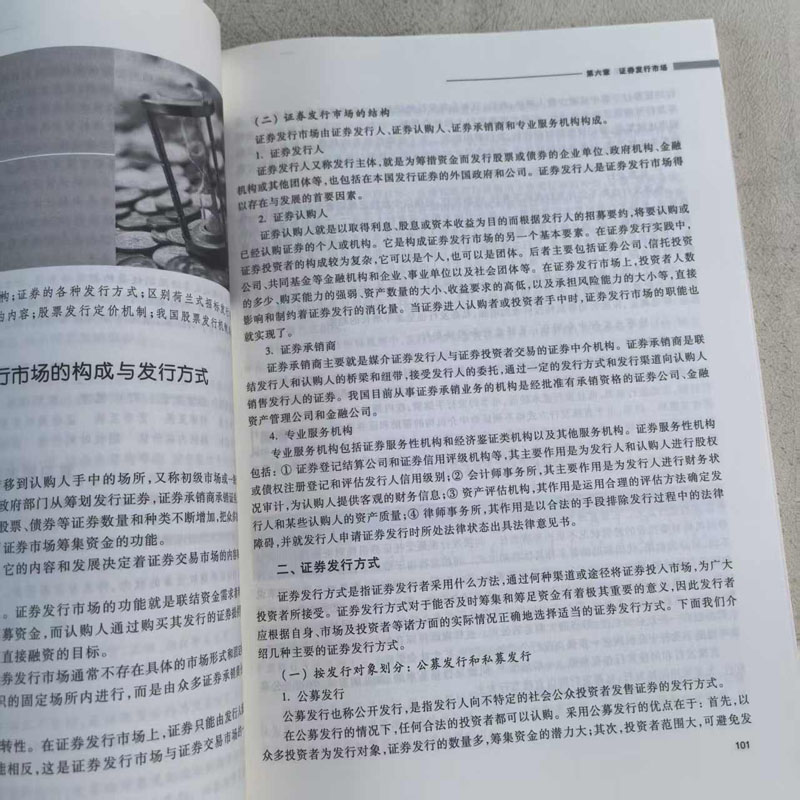 构;证券的各种发行方式;区别荷兰式招标发行
的内容;股票发行定价机制;我国股票发行机制
行市场的构成与发行方式
移到认购人手中的场所,又称初级市场或一级
政府部门从筹划发行证券,证券承销商承销证券
股票、债券等证券数量和种类不断增加,把众多
证券市场筹集资金的功能。
它的内容和发展决定着证券交易市场的内容和
。证券发行市场的功能就是联结资金需求者
募资金,而认购人通过购买其发行的证券提供
直接融资的目标。
券发行市场通常不存在具体的市场形式和固定
织的固定场所内进行,而是由众多证券承销商
转性。在证券发行市场上,证券只能由发行人
能相反,这是证券发行市场与证券交易市场的
第六章 证券发行市场
(二)证券发行市场的结构
证券发行市场由证券发行人、证券认购人、证券承销商和专业服务机构构成。
1. 证券发行人
证券发行人又称发行主体,就是为筹措资金而发行股票或债券的企业单位、政府机构、金融
机构或其他团体等,也包括在本国发行证券的外国政府和公司。证券发行人是证券发行市场得
以存在与发展的首要因素。
2. 证券认购人
证券认购人就是以取得利息、股息或资本收益为目的而根据发行人的招募要约,将要认购或
已经认购证券的个人或机构。它是构成证券发行市场的另一个基本要素。在证券发行实践中,
证券投资者的构成较为复杂,它可以是个人,也可以是团体。后者主要包括证券公司、信托投资
公司、共同基金等金融机构和企业、事业单位以及社会团体等。在证券发行市场上,投资者人数
的多少、购买能力的强弱、资产数量的大小、收益要求的高低,以及承担风险能力的大小等,直接
影响和制约着证券发行的消化量。当证券进入认购者或投资者手中时,证券发行市场的职能也
就实现了。
3. 证券承销商
证券承销商主要就是媒介证券发行人与证券投资者交易的证券中介机构。证券承销商是联
结发行人和认购人的桥梁和纽带,接受发行人的委托,通过一定的发行方式和发行渠道向认购人
销售发行人的证券。我国目前从事证券承销业务的机构是经批准有承销资格的证券公司、金融
资产管理公司和金融公司。
4. 专业服务机构
专业服务机构包括证券服务性机构和经济鉴证类机构以及其他服务机构。证券服务性机构
包括:① 证券登记结算公司和证券信用评级机构等,其主要作用是为发行人和认购人进行股权
或债权注册登记和评估发行人信用级别;② 会计师事务所,其主要作用是为发行人进行财务状
况审计,为认购人提供客观的财务信息;③ 资产评估机构,其作用是运用合理的评估方法确定发
行人和某些认购人的资产质量;④ 律师事务所,其作用是以合法的手段排除发行过程中的法律
障碍,并就发行人申请证券发行时所处法律状态出具法律意见书。
二、证券发行方式
证券发行方式是指证券发行者采用什么方法,通过何种渠道或途径将证券投入市场,为广大
投资者所接受。证券发行方式对于能否及时筹集和筹足资金有着极其重要的意义,因此发行者
应根据自身、市场及投资者等诸方面的实际情况正确地选择适当的证券发行方式。下面我们介
绍几种主要的证券发行方式。
(一)按发行对象划分:公募发行和私募发行
1. 公募发行
公募发行也称公开发行,是指发行人向不特定的社会公众投资者发售证券的发行方式。
在公募发行的情况下,任何合法的投资者都可以认购。采用公募发行的优点在于:首先,以
众多投资者为发行对象,证券发行的数量多,筹集资金的潜力大;其次,投资者范围大,可避免发
101